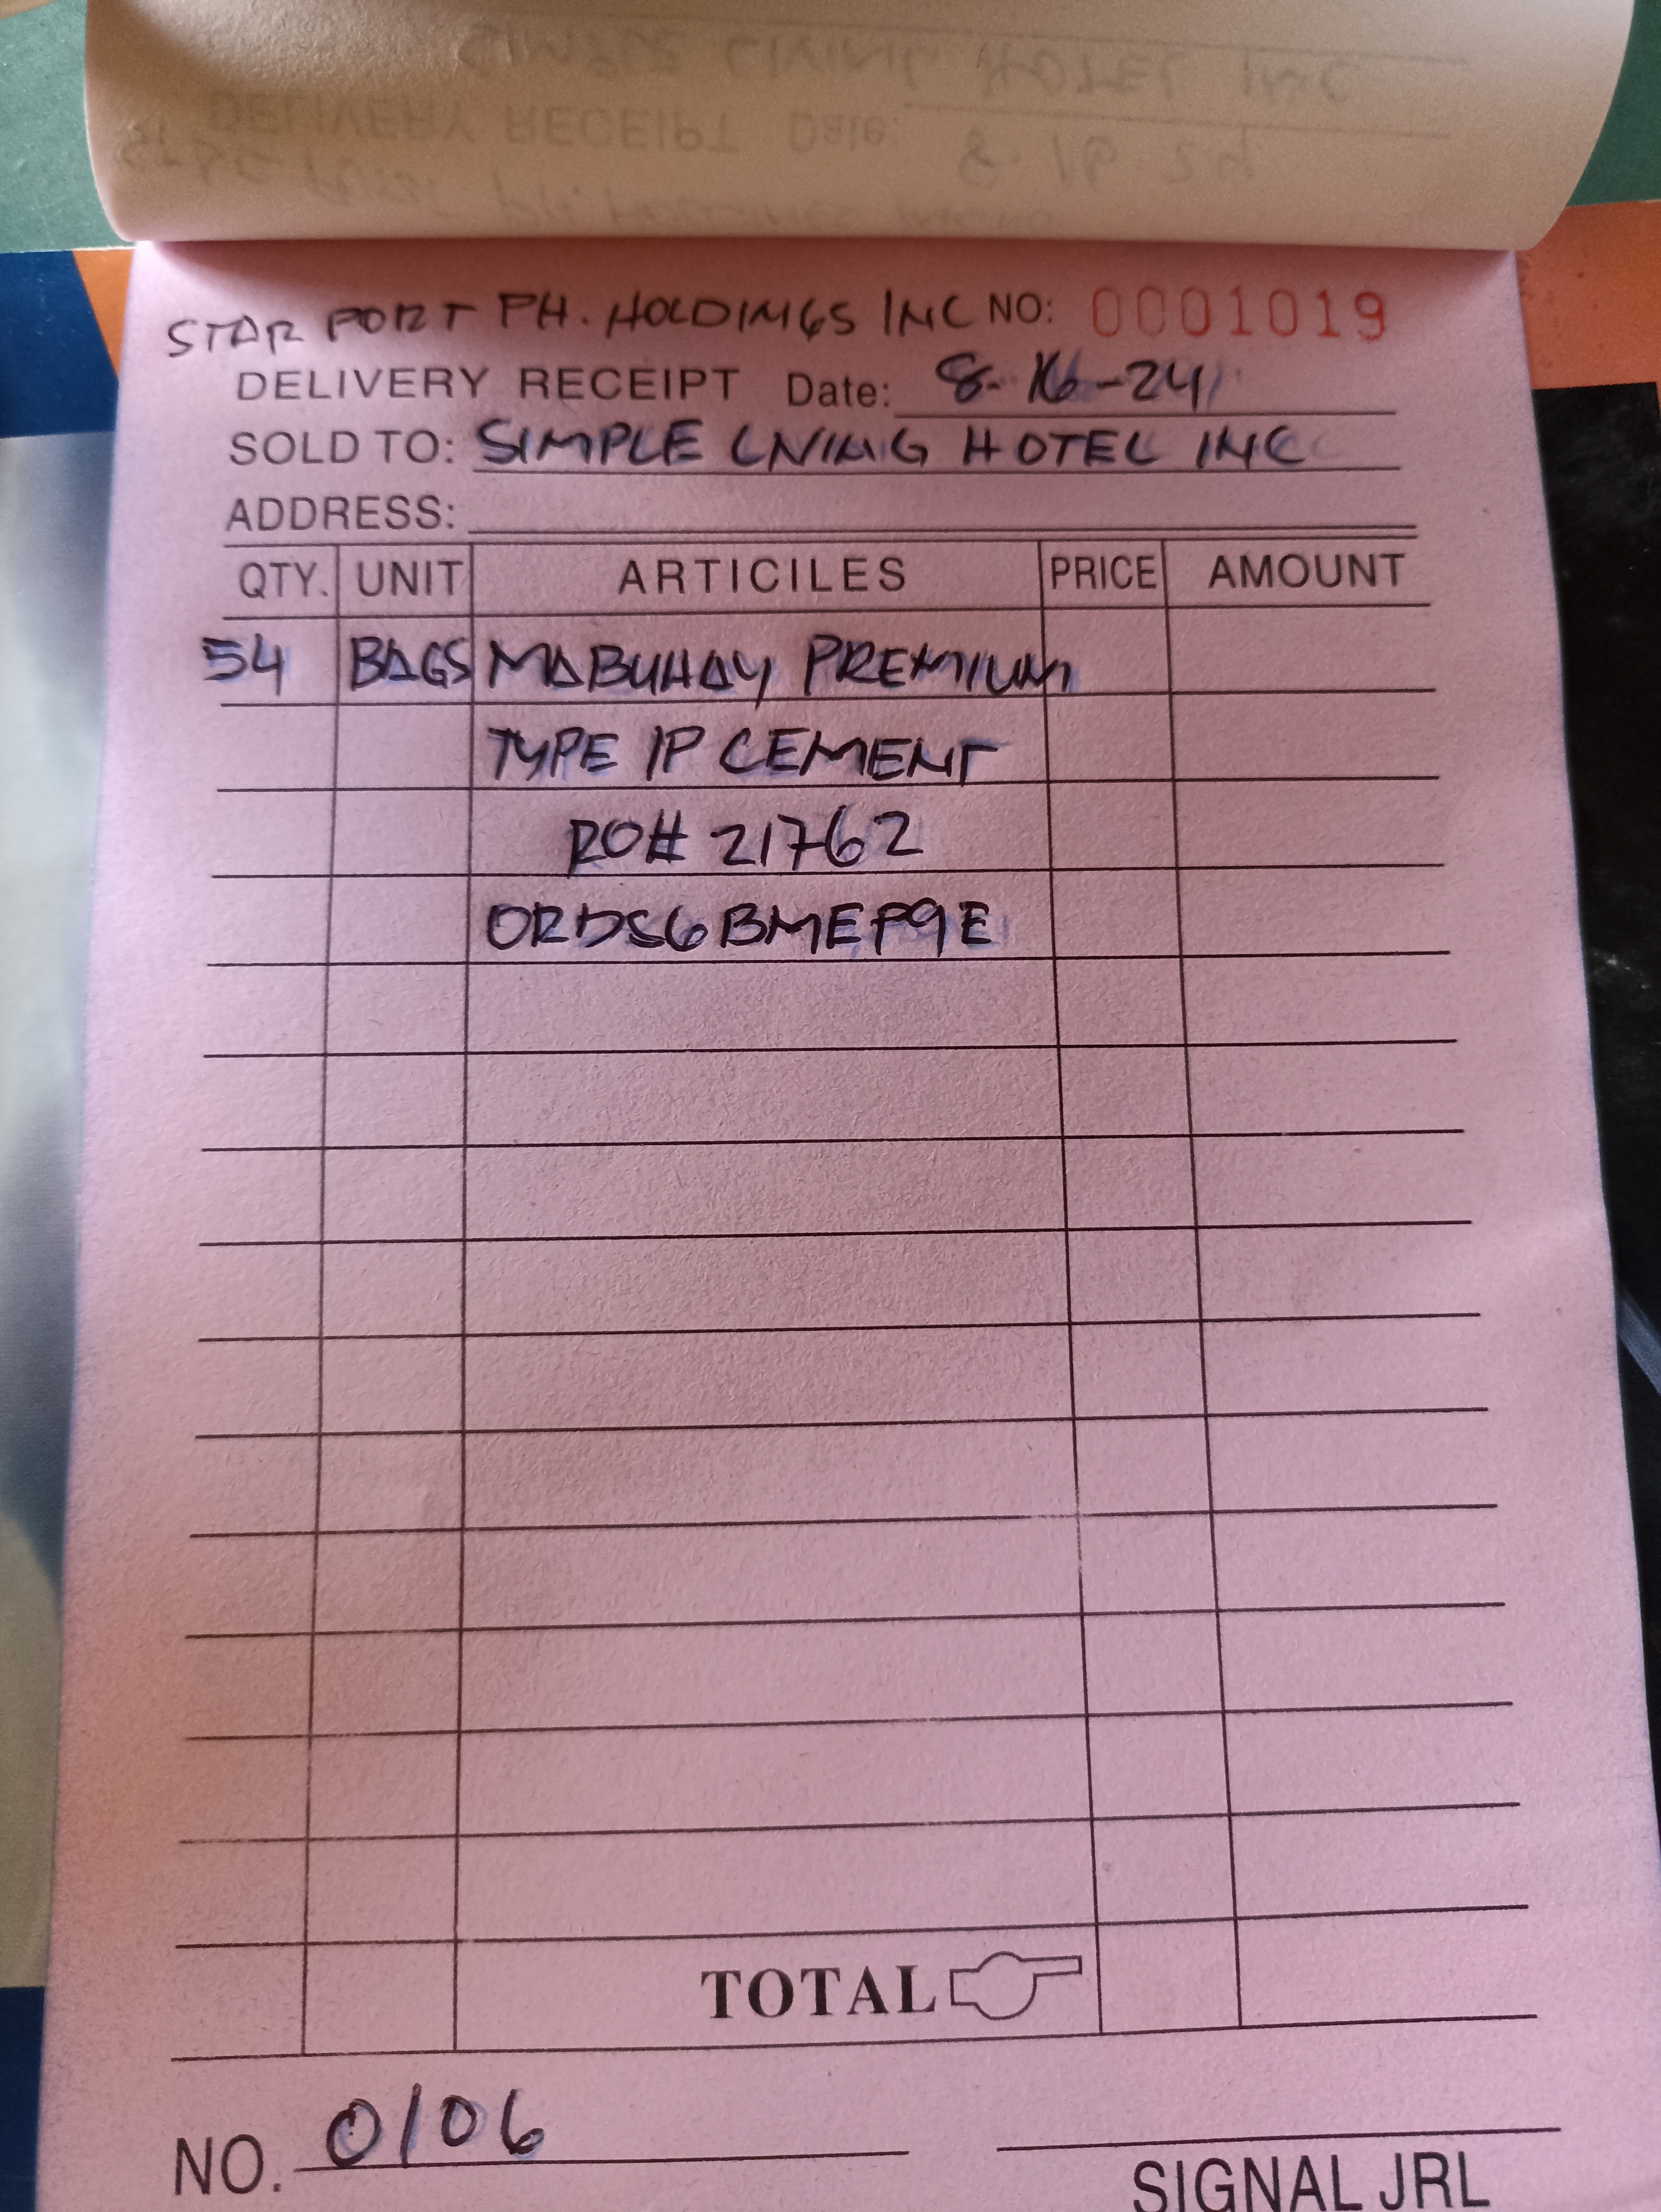 STAR PORT PH. HOLDINGS INC NO: 0001019
DELIVERY RECEIPT Date: 8-16-24
SOLD TO: SIMPLE LIVING HOTEL INC
ADDRESS:
QTY. UNIT ARTICILES PRICE AMOUNT
54 BAGS MABUHAY PREMIUM
TYPE 1P CEMENT
RO# 21762
ORDS6BMEP9E
TOTAL
NO. 0106
SIGNAL JRL